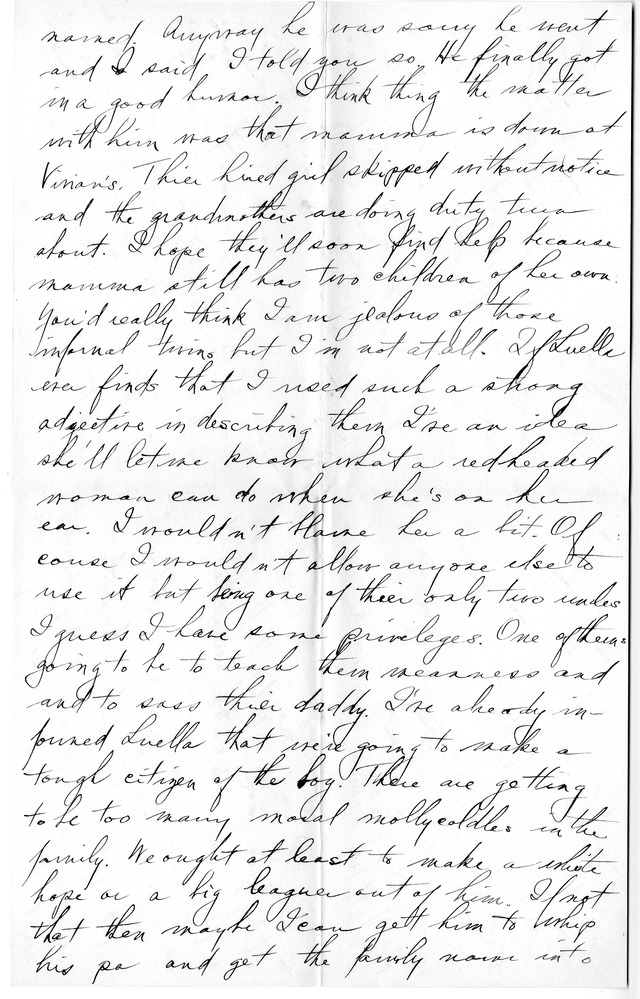 named. Anyway he was sorry he went
and I said I told you so. He finally got
in a good humor. I think thing the matter
with him was that mamma is down at
Vivian's. Thier hired girl skipped without notice
and the grandmothers are doing duty turn
about. I hope they'll soon find help because
mamma still has two children of her own.
You'd really think I am jealous of those
infernal twins but I'm not at all. If Luella
ever finds that I used such a strong
adjective in describing them I've an idea
she'll let me know what a redheaded
woman can do when she's on her
ear. I wouldn't blame her a bit. Of
couse I wouldn't allow anyone else to
use it but being one of thier only two uncles
I guess I have some privileges. One of them's
going to be to teach them meanness and
and to sass thier daddy. I've already in-
formed Luella that we're going to make a
tough citizen of the boy. There are getting
to be too many moral mollycoddles in the
family. We ought at least to make a white
hope or a big leaguer out of him. If not
that then maybe I can gett him to whip
his pa and get the family name into